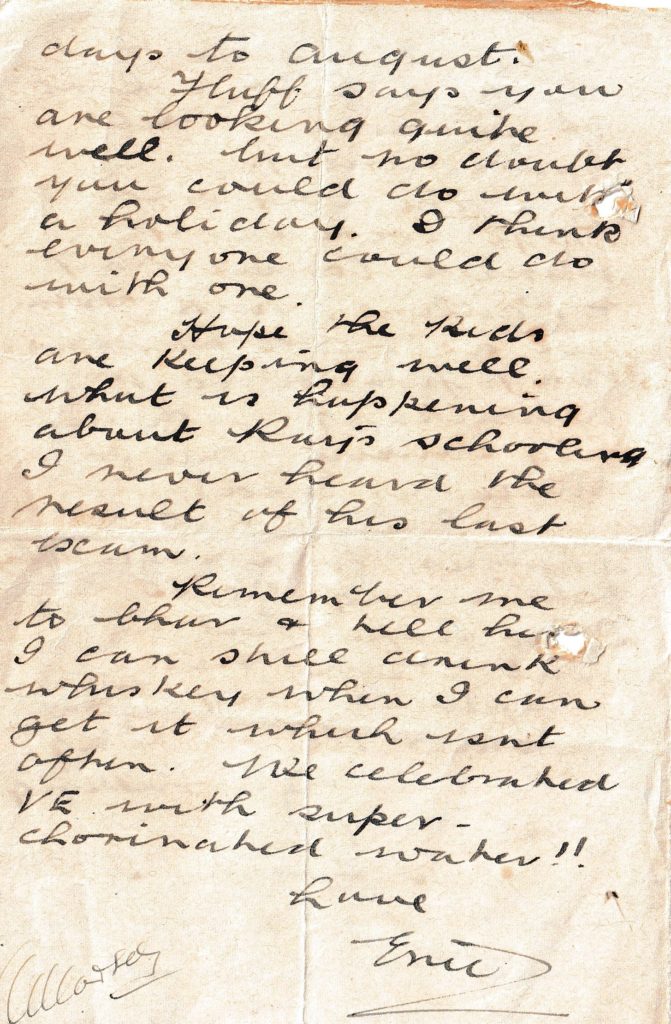 days to august.
Fluff says you
are looking quite
well. but no doubt
you could do with
a holiday. I think
everyone could do
with one.
Hope the kids
are keeping well.
what is happening
about Ray's schooling
I never heard the
result of his last
exam.
Remember me
to & tell
I can still drink
whiskey when I can
get it which isnt
often. We celebrated
VE with super-
chorinated water!!
Love